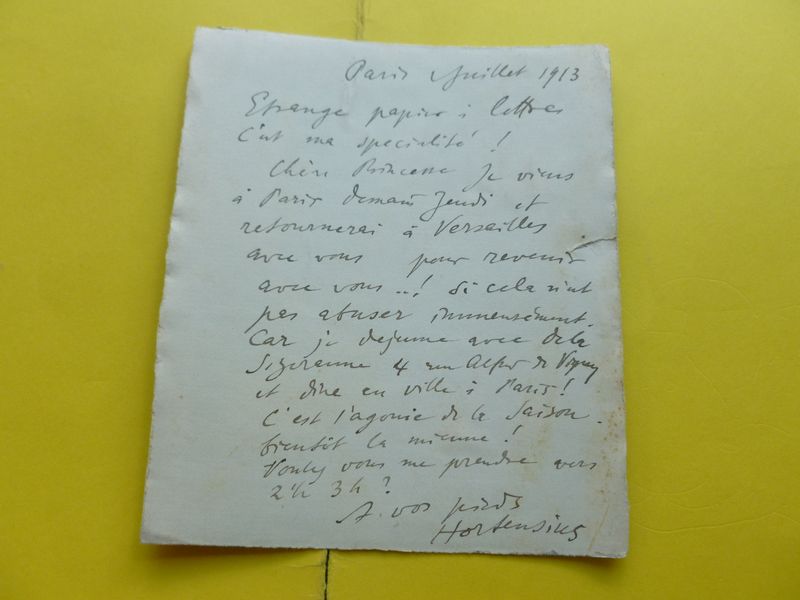 Paris Juillet 1913
Etrange papier à lettres
C'est ma specialité !
Chère Princesse Je viens
à Paris demain Jeudi et
retournerai à Versailles
avec vous pour revenir
avec vous ..! Si cela n'est
pas abuser immensément.
Car je dejeune avec de la
Sizeranne 4 rue Alfred de Vigny
et dîne en ville à Paris !
C'est l'agonie de la Saison.
bientôt la mienne !
Voulez vous me prendre vers
2h 3h ?
A vos pieds
Hortensius